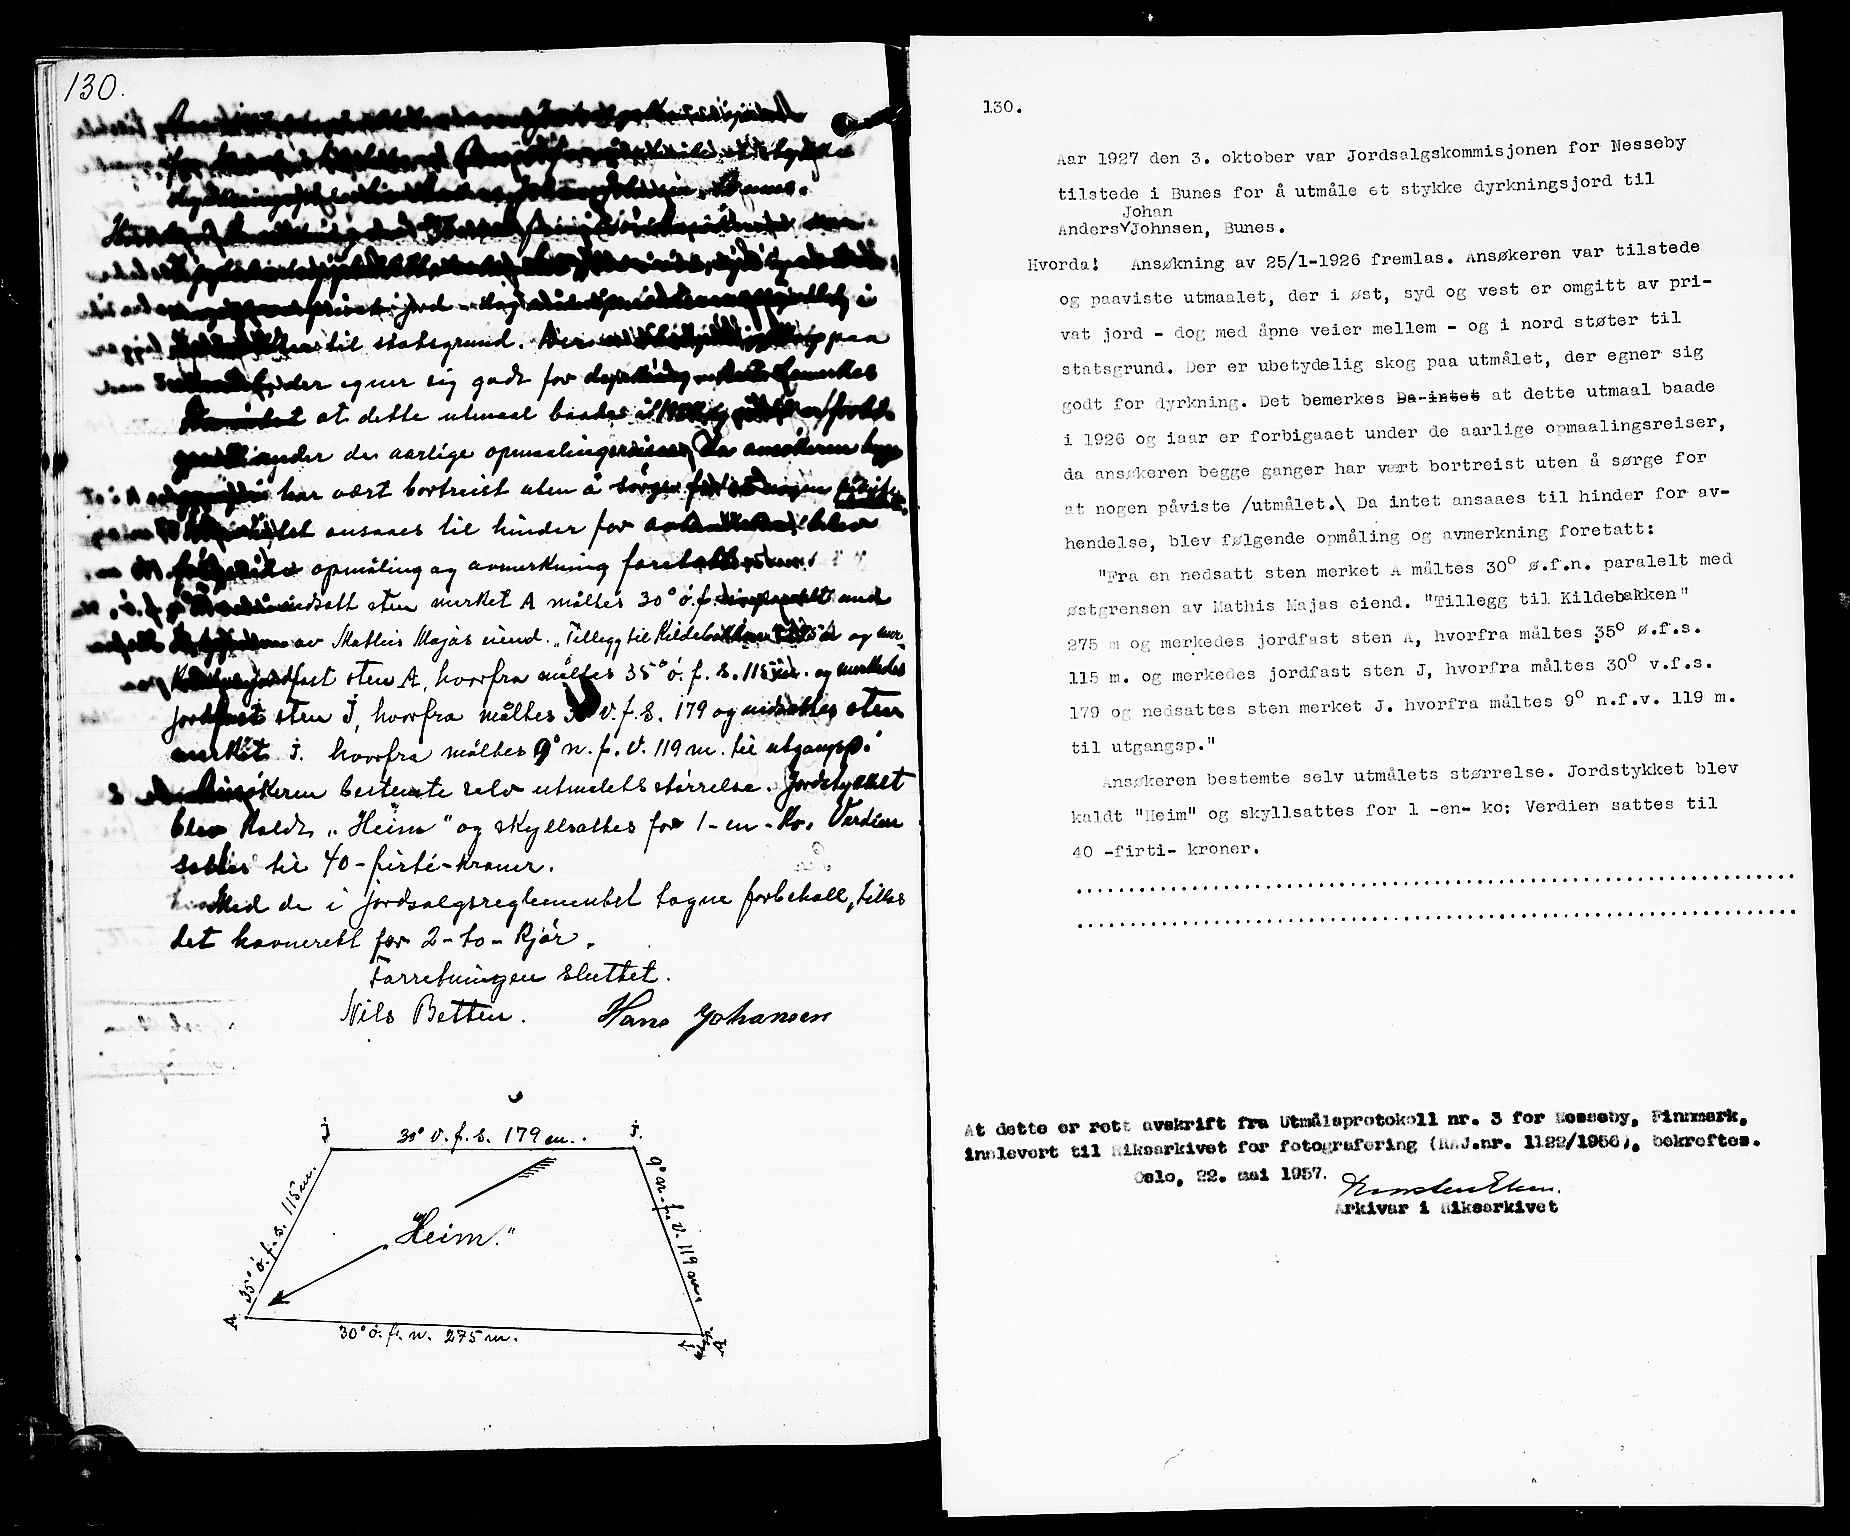 130.
til statsgrund. Der paa
der egner sig godt for dyrkning. Det bemerkes
at dette utmaal baade i 1926 og iaar er forbi-
gaaet under de aarlige opmaalingsreiser, da ansøkeren begge
har vært bortreist uten å sørge for at nogen påviste
intet ansaaes til hinder for avhendelse, blev
følgende opmåling og avmerkning foretatt:
nedsatt sten merket A måltes 30° ø.f.n. paralelt med
av Mathis Majas eiend. "Tillegg til Kildebakken" 275 m og mer-
kedes jordfast sten A, hvorfra måltes 35° ø.f.s. 115 m. og merkedes
jordfast sten J, hvorfra måltes 30° v.f.s. 179 og nedsattes sten
merket J. hvorfra måltes 9° n.f.v. 119 m. til utgangsp."
Ansøkeren bestemte selv utmålets størrelse. Jordstykket
blev kaldt "Heim" og skyllsattes for 1-en-ko. Verdien
sattes til 40-firti-kroner.
Med de i jordsalgsreglementet tagne forbehold, tillaes
det havnerett for 2-to-kjør.
Forretningen sluttet.
Nils Betten. Hans Johansen
J 30° v.f.s. 179 m. J.
35° ø.f.s. 115 m.
9° n.f.v. 119 m
"Heim."
A
30° ø.f.n. 275 m.
A.
130.
Aar 1927 den 3. oktober var Jordsalgskommisjonen for Nesseby
tilstede i Bunes for å utmåle et stykke dyrkningsjord til
Johan
Anders Johnsen, Bunes.
Hvorda! Ansøkning av 25/1-1926 fremlas. Ansøkeren var tilstede
og paaviste utmaalet, der i øst, syd og vest er omgitt av pri-
vat jord - dog med åpne veier mellem - og i nord støter til
statsgrund. Der er ubetydelig skog paa utmålet, der egner sig
godt for dyrkning. Det bemerkes Da intet at dette utmaal baade
i 1926 og iaar er forbigaaet under de aarlige opmaalingsreiser,
da ansøkeren begge ganger har vært bortreist uten å sørge for
at nogen påviste /utmålet.\ Da intet ansaaes til hinder for av-
hendelse, blev følgende opmåling og avmerkning foretatt:
"Fra en nedsatt sten merket A måltes 30° ø.f.n. paralelt med
østgrensen av Mathis Majas eiend. "Tillegg til Kildebakken"
275 m og merkedes jordfast sten A, hvorfra måltes 35° ø.f.s.
115 m. og merkedes jordfast sten J, hvorfra måltes 30° v.f.s.
179 og nedsattes sten merket J. hvorfra måltes 9° n.f.v. 119 m.
til utgangsp."
Ansøkeren bestemte selv utmålets størrelse. Jordstykket blev
kaldt "Heim" og skyllsattes for 1 -en- ko: Verdien sattes til
40 -firti- kroner.
................................................................
................................................................
At dette er rett avskrift fra Utmålsprotokoll nr. 3 for Nesseby, Finnmark,
innlevert til Riksarkivet for fotografering (RAJ.nr. 1122/1956), bekreftes.
Oslo, 22. mai 1957.
Arkivar i Riksarkivet